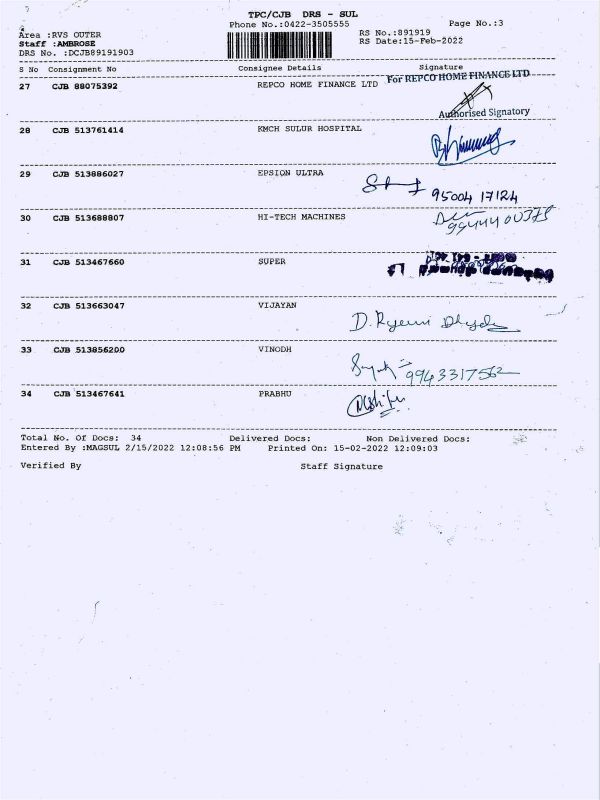 TPC/CJB DRS - SUL
Phone No.:0422-3505555 Page No.:3
Area :RVS OUTER RS No.:891919
Staff :AMBROSE RS Date:15-Feb-2022
DRS No. :DCJB89191903
S No Consignment No Consignee Details Signature
27 CJB 88075392 REPCO HOME FINANCE LTD For REPCO HOME FINANCE LTD
Authorised Signatory
28 CJB 513761414 KMCH SULUR HOSPITAL
29 CJB 513886027 EPSION ULTRA
95004 17124
30 CJB 513688807 HI-TECH MACHINES
31 CJB 513467660 SUPER
32 CJB 513663047 VIJAYAN
D.
33 CJB 513856200 VINODH
9943317562
34 CJB 513467641 PRABHU
Total No. Of Docs: 34 Delivered Docs: Non Delivered Docs:
Entered By :MAGSUL 2/15/2022 12:08:56 PM Printed On: 15-02-2022 12:09:03
Verified By Staff Signature